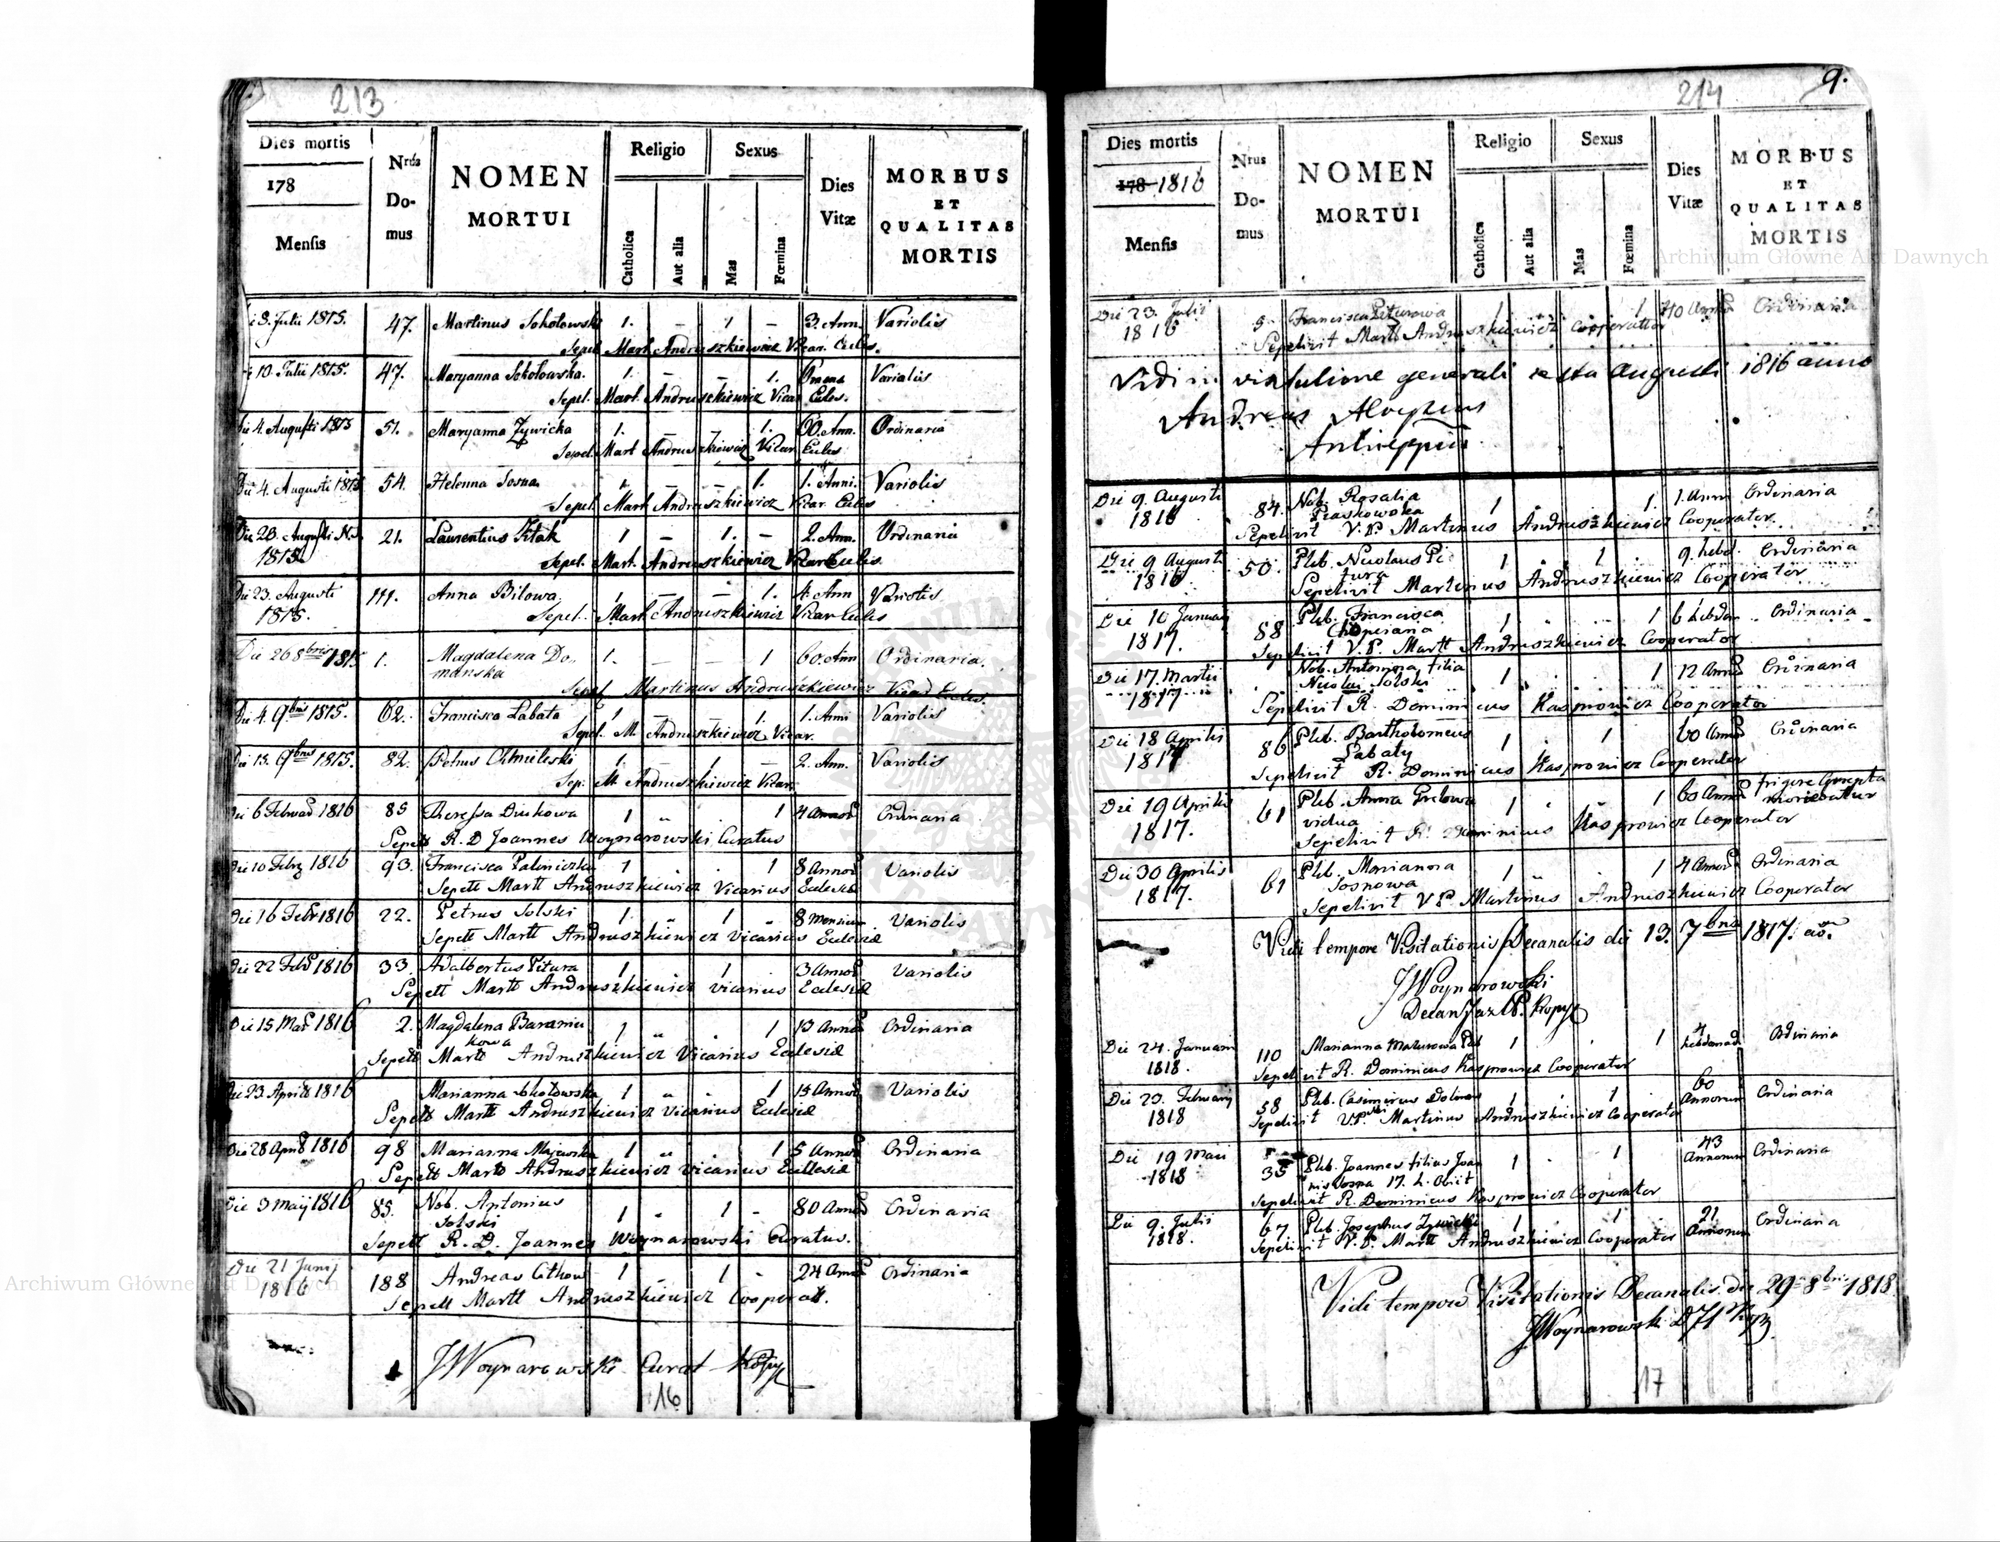 213
Dies mortis
178
Mensis
Nrus Do-mus
NOMEN
MORTUI
Religio
Catholica
Aut alia
Sexus
Mas
Fœmina
Dies
Vitæ
MORBUS
ET
QUALITAS
MORTIS
8. Julii 1815. 47. Martinus Sokołowski 1. — 1 — 3. Ann. Variolis
Sepel. Mart. Andruszkiewicz Vicar. Eccles.
10. Julii 1815. 47. Maryanna Sokołowska. 1. — — 1. Variolis
Sepel. Mart. Andruszkiewicz Vicar Ecles.
Die 4. Augusti 1815 51. Maryanna Zywicka 1. — — 1. 60. Ann. Ordinaria
Sepel. Mart Andruszkiewicz Vicar Ecles
Die 4. Augusti 1815 54. Helenna Sosna 1. — — 1. 1. Anni. Variolis
Sepel. Mart. Andruszkiewicz Vicar. Ecles
Die 20. Augusti 21. Laurentius 1 — 1. — 2. Ann. Ordinaria
1815.
Sepel. Mart. Andruszkiewicz Vicar Eclis.
Die 23. Augusti 111. Anna Bilowa. 1. — — 1. 4. Ann Variolis
1815.
Sepel. Mart. Andruszkiewicz Vicar Eccles
Die 26 8bris 1815 1. Magdalena Do- 1. — — 1 60. Ann Ordinaria.
manska
Sepel Martinus Andruszkiewicz Vicar Eccles.
Die 4. 9bris 1815. 62. Francisca Labata 1 — — 1. 1. Anni Variolis
Sepel. M. Andruszkiewicz Vicar.
Die 13. 9bris 1815. 82. Petrus Chmieleski 1 — 1 — 2. Ann. Variolis
Sep. M. Andruszkiewicz Vicar.
Die 6 Februar 1816 85 Theressa Duskowa 1 " 1 4 Annor Ordinaria
Sepelt R. D Joannes Woynarowski Curatus
Die 10 Febr 1816 93. Francisca 1 1 8 Annor Variolis
Sepelt Martt Andruszkiewicz Vicarius Eclesiæ
Die 16 Febr 1816 22. Petrus Solski 1 " 1 8 Mensium Variolis
Sepelt Martt Andruszkiewicz Vicarius Eclesiæ
Die 22 Feb 1816 33. Adalbertus Pitura 1 1 3 Annor Variolis
Sepelt Martt Andruszkiewicz Vicarius Eclesiæ
Die 15 Mar 1816 2. Magdalena Baraniu 1 " 1 13 Annor Ordinaria
kowa
Sepelt Martt Andruszkiewicz Vicarius Eclesiæ
Die 23. Aprilis 1816 Marianna Sokołowska 1 " 1 Annor Variolis
Sepelt Martt Andruszkiewicz Vicarius Eclesiæ
Die 28 April 1816 98 Marianna Majewska 1 " 1 5 Annor Ordinaria
Sepelt Martt Andruszkiewicz Vicarius Ecclesiæ
Die 3 Maij 1816 85. Nob. Antonius 1 " 1 - 80 Annor Ordinaria
Solski
Sepelt R. D. Joannes Woynarowski Curatus.
Die 21 Junij 188 Andreas 1 1 - 24 Annor Ordinaria
1816
Sepelt Martt Andruszkiewicz Cooperatt.
JWoynarowski Curat
16
214
9.
Dies mortis
178 1816
Mensis
Nrus Do-mus
NOMEN
MORTUI
Religio
Catholica
Aut alia
Sexus
Mas
Fœmina
Dies
Vitæ
MORBUS
ET
QUALITAS
MORTIS
Die 23. Julii 5. Francisca Piturowa 1 1 40 Annor Ordinaria
1816 Sepelivit Martt Andruszkiewicz Cooperattor
Vidi in visitatione generali sexta Augusti 1816 anno
Andreas Aloysius
Die 9. Augusti 84. Nob. Rosalia 1 1. 1. Anni Ordinaria
1816 Piaskowska
Sepelivit V. P. Martinus Andruszkiewicz Cooperator.
Die 9 Augusti 50. Plib. Nicolaus Pi- 1 1 9. hebd. Ordinaria
1816 tura
Sepelivit Martinus Andruszkiewicz Cooperator
Die 10 Januarij 88 Plib. Francisca 1 1 6 hebdom Ordinaria
1817.
Sepelivit V. P. Martt Andruszkiewicz Cooperator
Die 17. Martii 1 Nob. Antonina filia 1 1 12 Annor Ordinaria
1817 Nicolai Solski
Sepelivit R. Dominicus Kasprowicz Cooperator
Die 18 Aprilis 86 Plib. Bartholomeus 1 1 60 Annor Ordinaria
1817 Labaty
Sepelivit R. Dominicus Kasprowicz Cooperator
Die 19 Aprilis 61 Plib. Anna 1 1 60 Annor frigore correpta
1817. vidua moriebatur
Sepelivit R. Dominicus Kasprowicz Cooperator
Die 30 Aprilis 61 Plib. Marianna 1 1 4 Annor Ordinaria
1817. Sosnowa
Sepelivit V P. Martinus Andruszkiewicz Cooperator
Vidi tempore Visitationis Decanalis die 13. 7bris 1817. ao.
JWoynarowski
Decan
Die 24. Januarii 110 Marianna Mazurowa 1 1 4 hebdomad Ordinaria
1818. Sepelivit R. Dominicus Kasprowicz Cooperator
Die 23. Februarij 58 Plib. Casimirus 1 1 60 Annorum Ordinaria
1818 Sepelivit V. P. Martinus Andruszkiewicz Cooperator
Die 19 Maii 35 Plib. Joannes filius Joan 1 1 43 Annorum Ordinaria
1818 nis Sosna 17. h. Obiit
Sepelivit R. Dominicus Kasprowicz Cooperator
Die 9. Julii 67 Plib. Josephus Zywicki 1 1 21 Annorum Ordinaria
1818. Sepelivit V. P. Martt Andruszkiewicz Cooperator
Vidi tempore Visitationis Decanalis die 29 8bris 1818
JWoynarowski
17
Archiwum Główne Akt Dawnych
Archiwum Główne Akt Dawnych